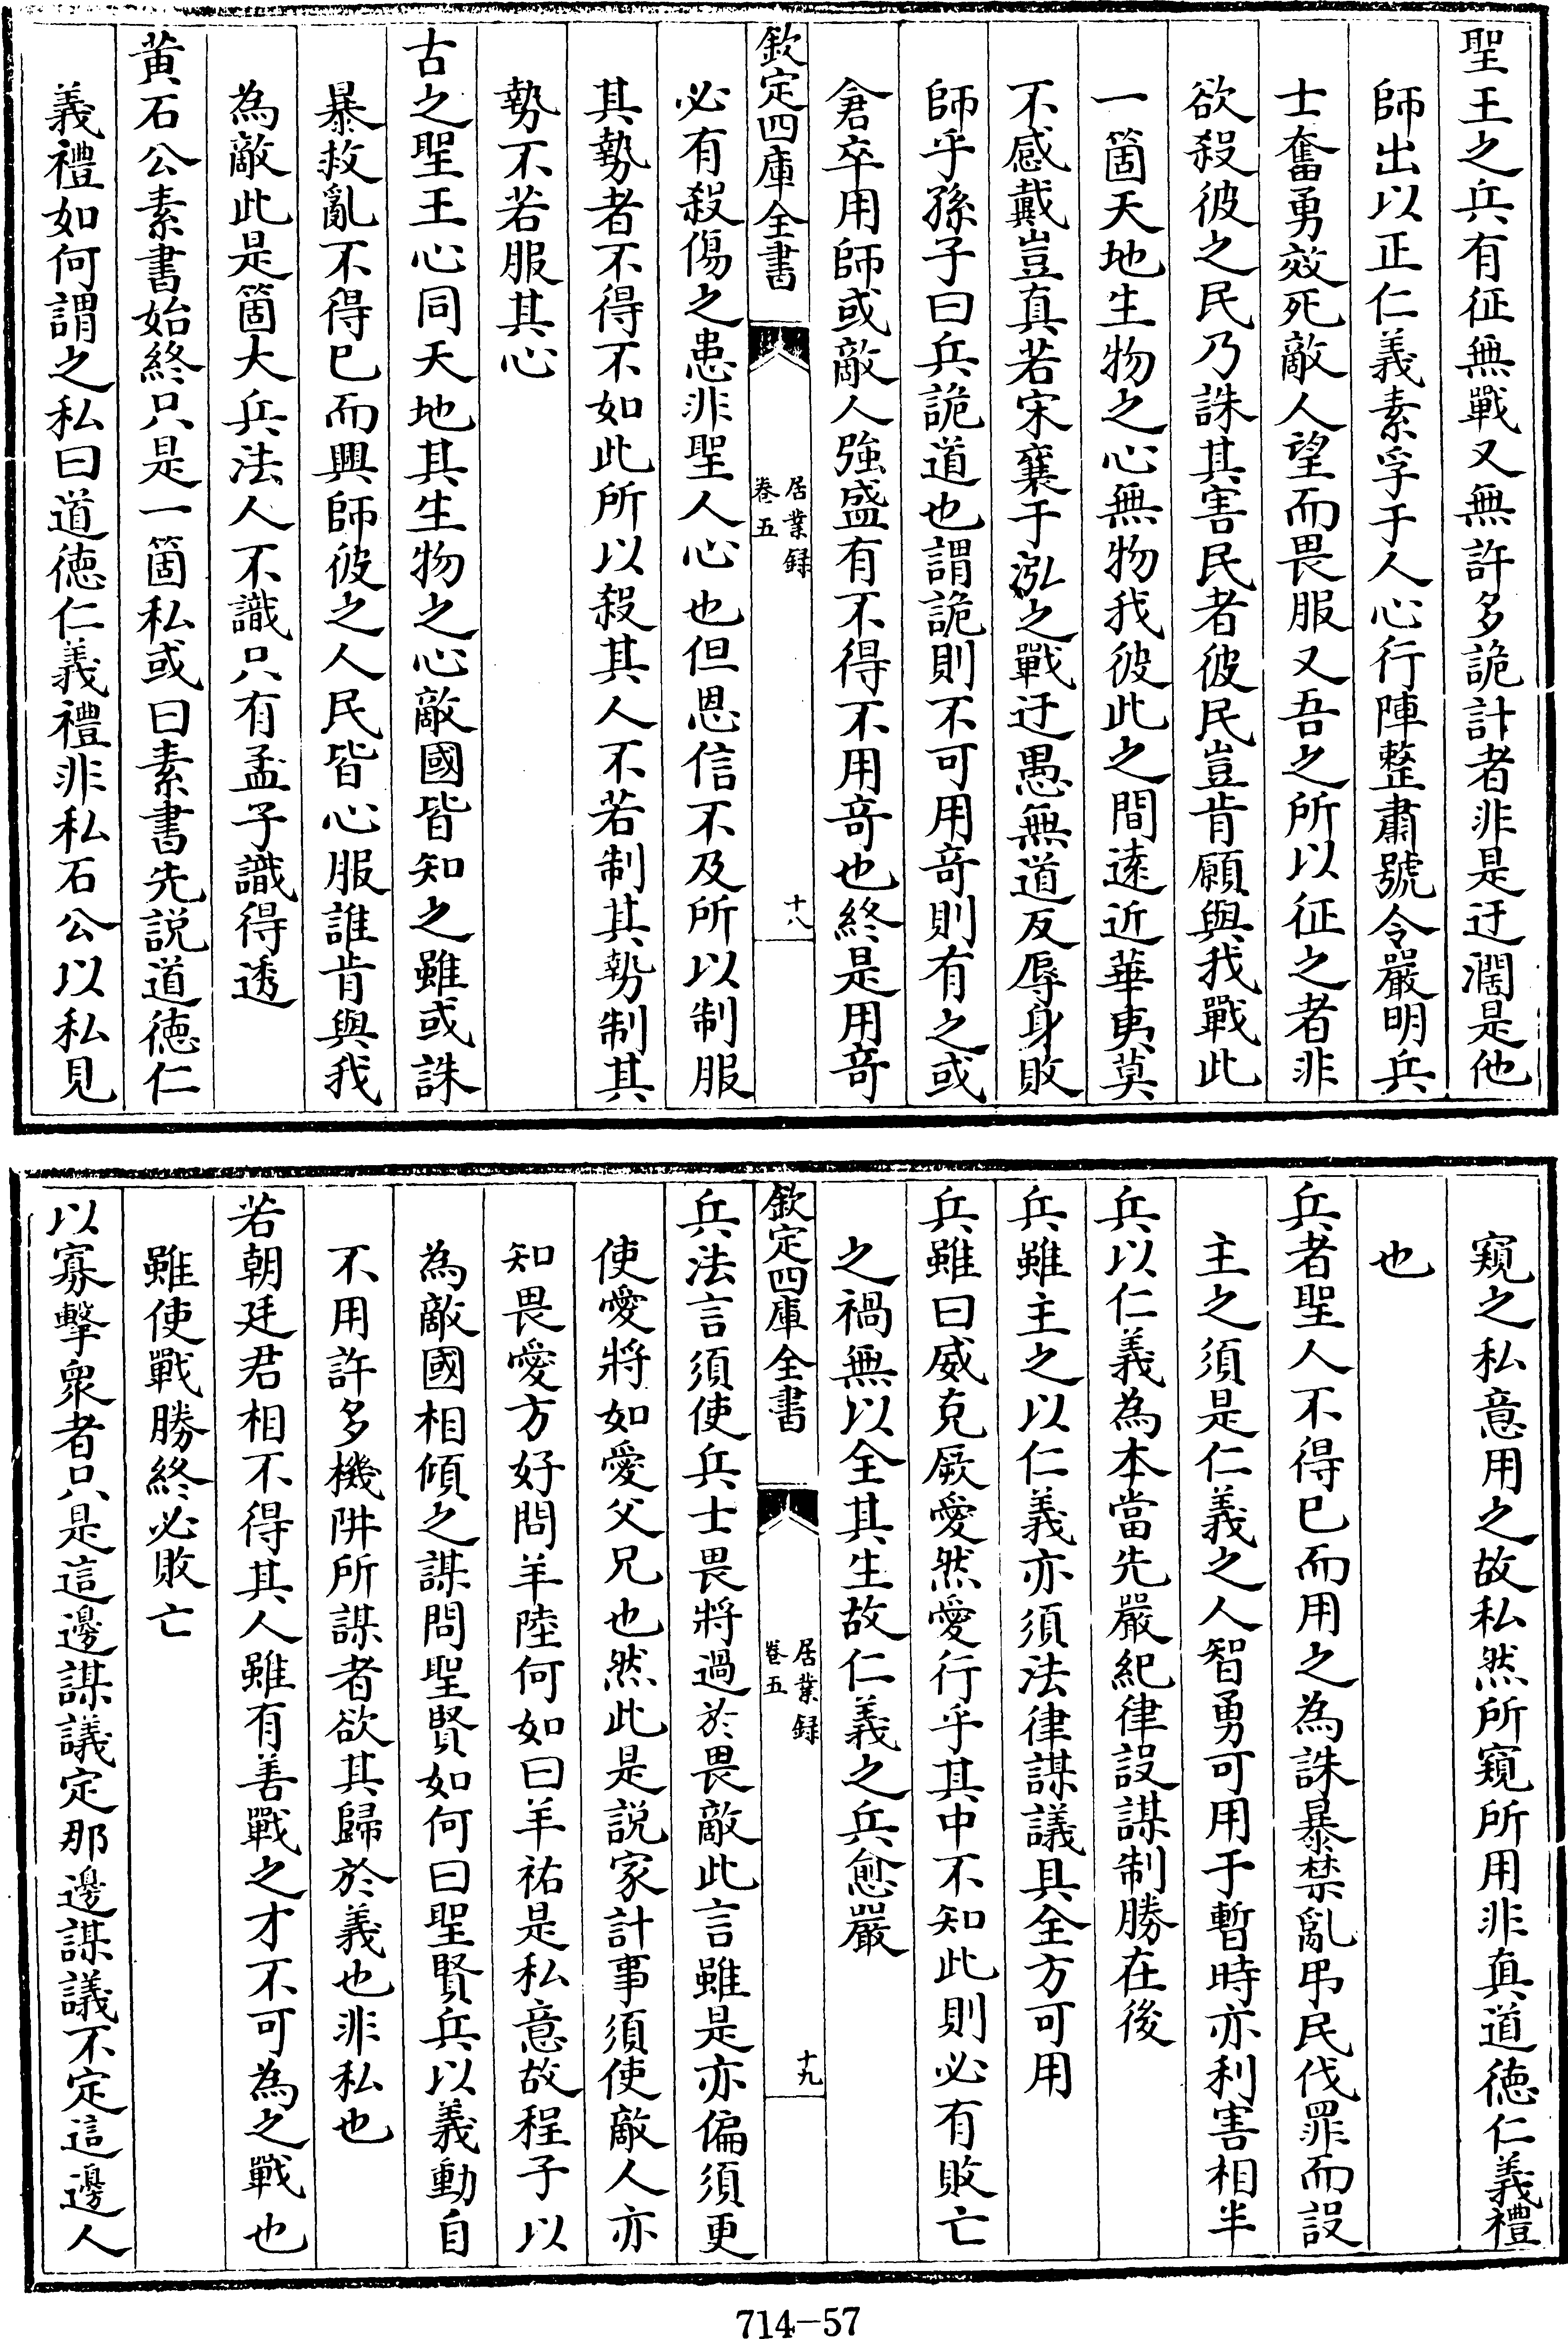 聖王之兵有征無戰又無許多詭計者非是迂濶是他
師出以正仁義素孚于人心行陣整肅號令嚴明兵
士奮勇效死敵人望而畏服又吾之所以征之者非
欲殺彼之民乃誅其害民者彼民豈肯願與我戰此
一箇天地生物之心無物我彼此之間遠近華夷莫
不感戴豈真若宋襄于泓之戰迂愚無道反辱身敗
師乎孫子曰兵詭道也謂詭則不可用竒則有之或
倉卒用師或敵人強盛有不得不用竒也終是用竒
欽定四庫全書
居業録
卷五
十八
必有殺傷之患非聖人心也但恩信不及所以制服
其勢者不得不如此所以殺其人不若制其勢制其
勢不若服其心
古之聖王心同天地其生物之心敵國皆知之雖或誅
暴救亂不得已而興師彼之人民皆心服誰肯與我
為敵此是箇大兵法人不識只有孟子識得透
黄石公素書始終只是一箇私或曰素書先説道徳仁
義禮如何謂之私曰道徳仁義禮非私石公以私見
窺之私意用之故私然所窺所用非真道徳仁義禮
也
兵者聖人不得已而用之為誅暴禁亂弔民伐罪而設
主之須是仁義之人智勇可用于暫時亦利害相半
兵以仁義為本當先嚴紀律設謀制勝在後
兵雖主之以仁義亦須法律謀議具全方可用
兵雖曰威克厥愛然愛行乎其中不知此則必有敗亡
之禍無以全其生故仁義之兵愈嚴
欽定四庫全書
居業録
卷五
十九
兵法言須使兵士畏將過於畏敵此言雖是亦偏須更
使愛將如愛父兄也然此是説家計事須使敵人亦
知畏愛方好問羊陸何如曰羊祐是私意故程子以
為敵國相傾之謀問聖賢如何曰聖賢兵以義動自
不用許多機阱所謀者欲其歸於義也非私也
若朝廷君相不得其人雖有善戰之才不可為之戰也
雖使戰勝終必敗亡
以寡擊衆者只是這邊謀議定那邊謀議不定這邊人
714-57